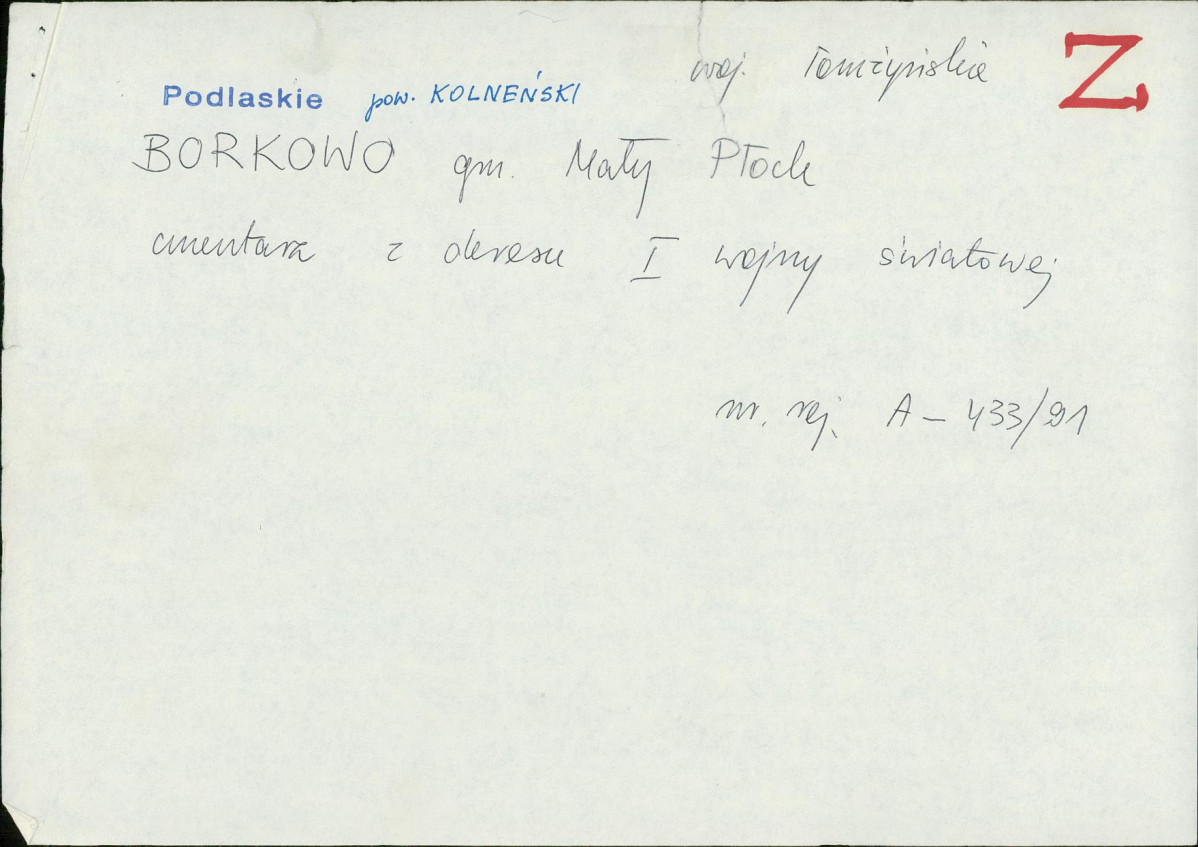 woj. Łomżyńskie Z
Podlaskie pow. KOLNEŃSKI
BORKOWO gm. Mały Płock
cmentarz z okresu I wojny światowej
nr. rej. A - 433/91